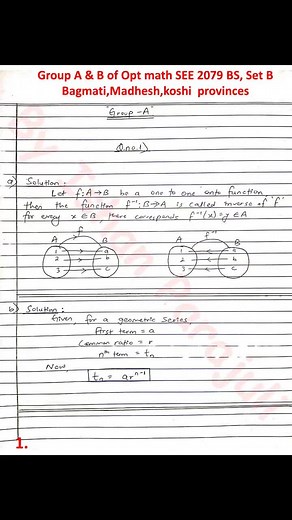 Group A & B of Opt math SEE 2079 BS, Set B
Bagmati,Madhesh,koshi provinces
"Group -A"
Q.no.1)
a) Solution:
Let f:A→B be a one to one onto function
then the function f⁻¹:B→A is called inverse of 'f'
for every x∈B, there corresponds f⁻¹(x)=y∈A
f
A B
1 a
2 b
3 c
f⁻¹
A B
1 a
2 b
3 c
b) Solution:
Given, for a geometric series,
First term = a
Common ratio = r
nᵗʰ term = tₙ
Now
tₙ = arⁿ⁻¹
1.